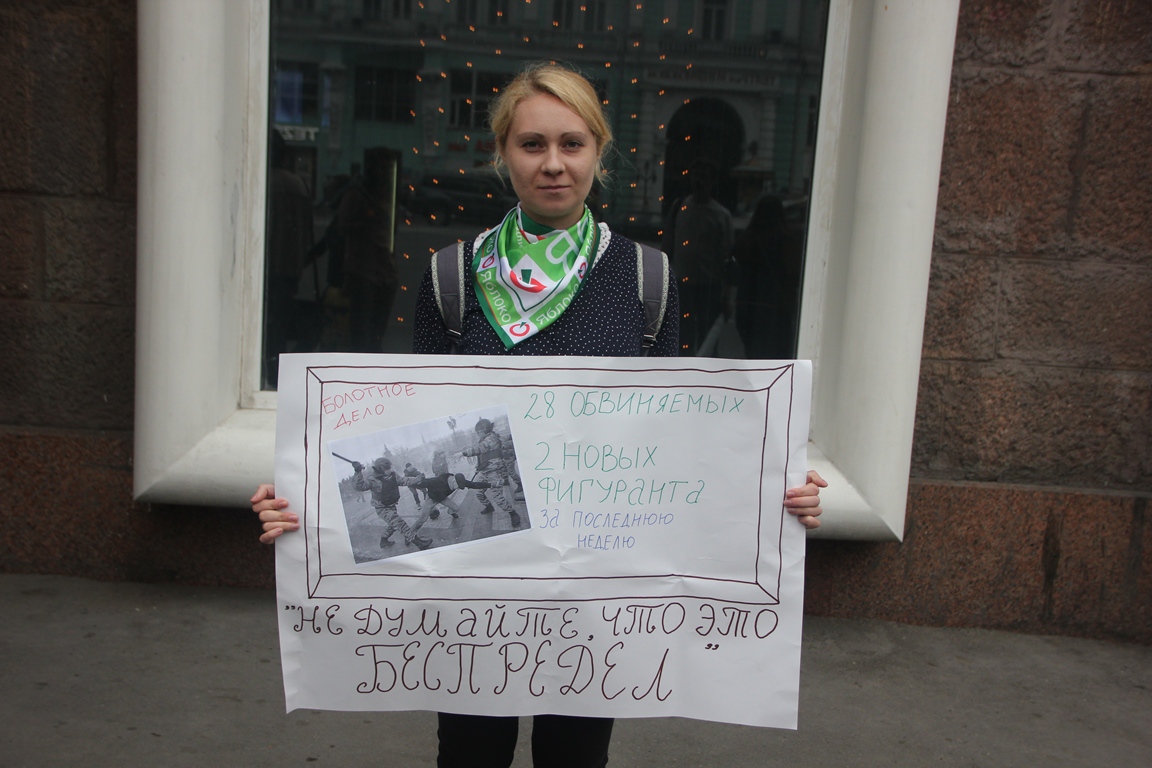 БОЛОТНОЕ
ДЕЛО
28 ОБВИНЯЕМЫХ
2 НОВЫХ
ФИГУРАНТА
ЗА ПОСЛЕДНЮЮ
НЕДЕЛЮ
"НЕ ДУМАЙТЕ, ЧТО ЭТО
БЕСПРЕДЕЛ"
Яблоко
Яблоко